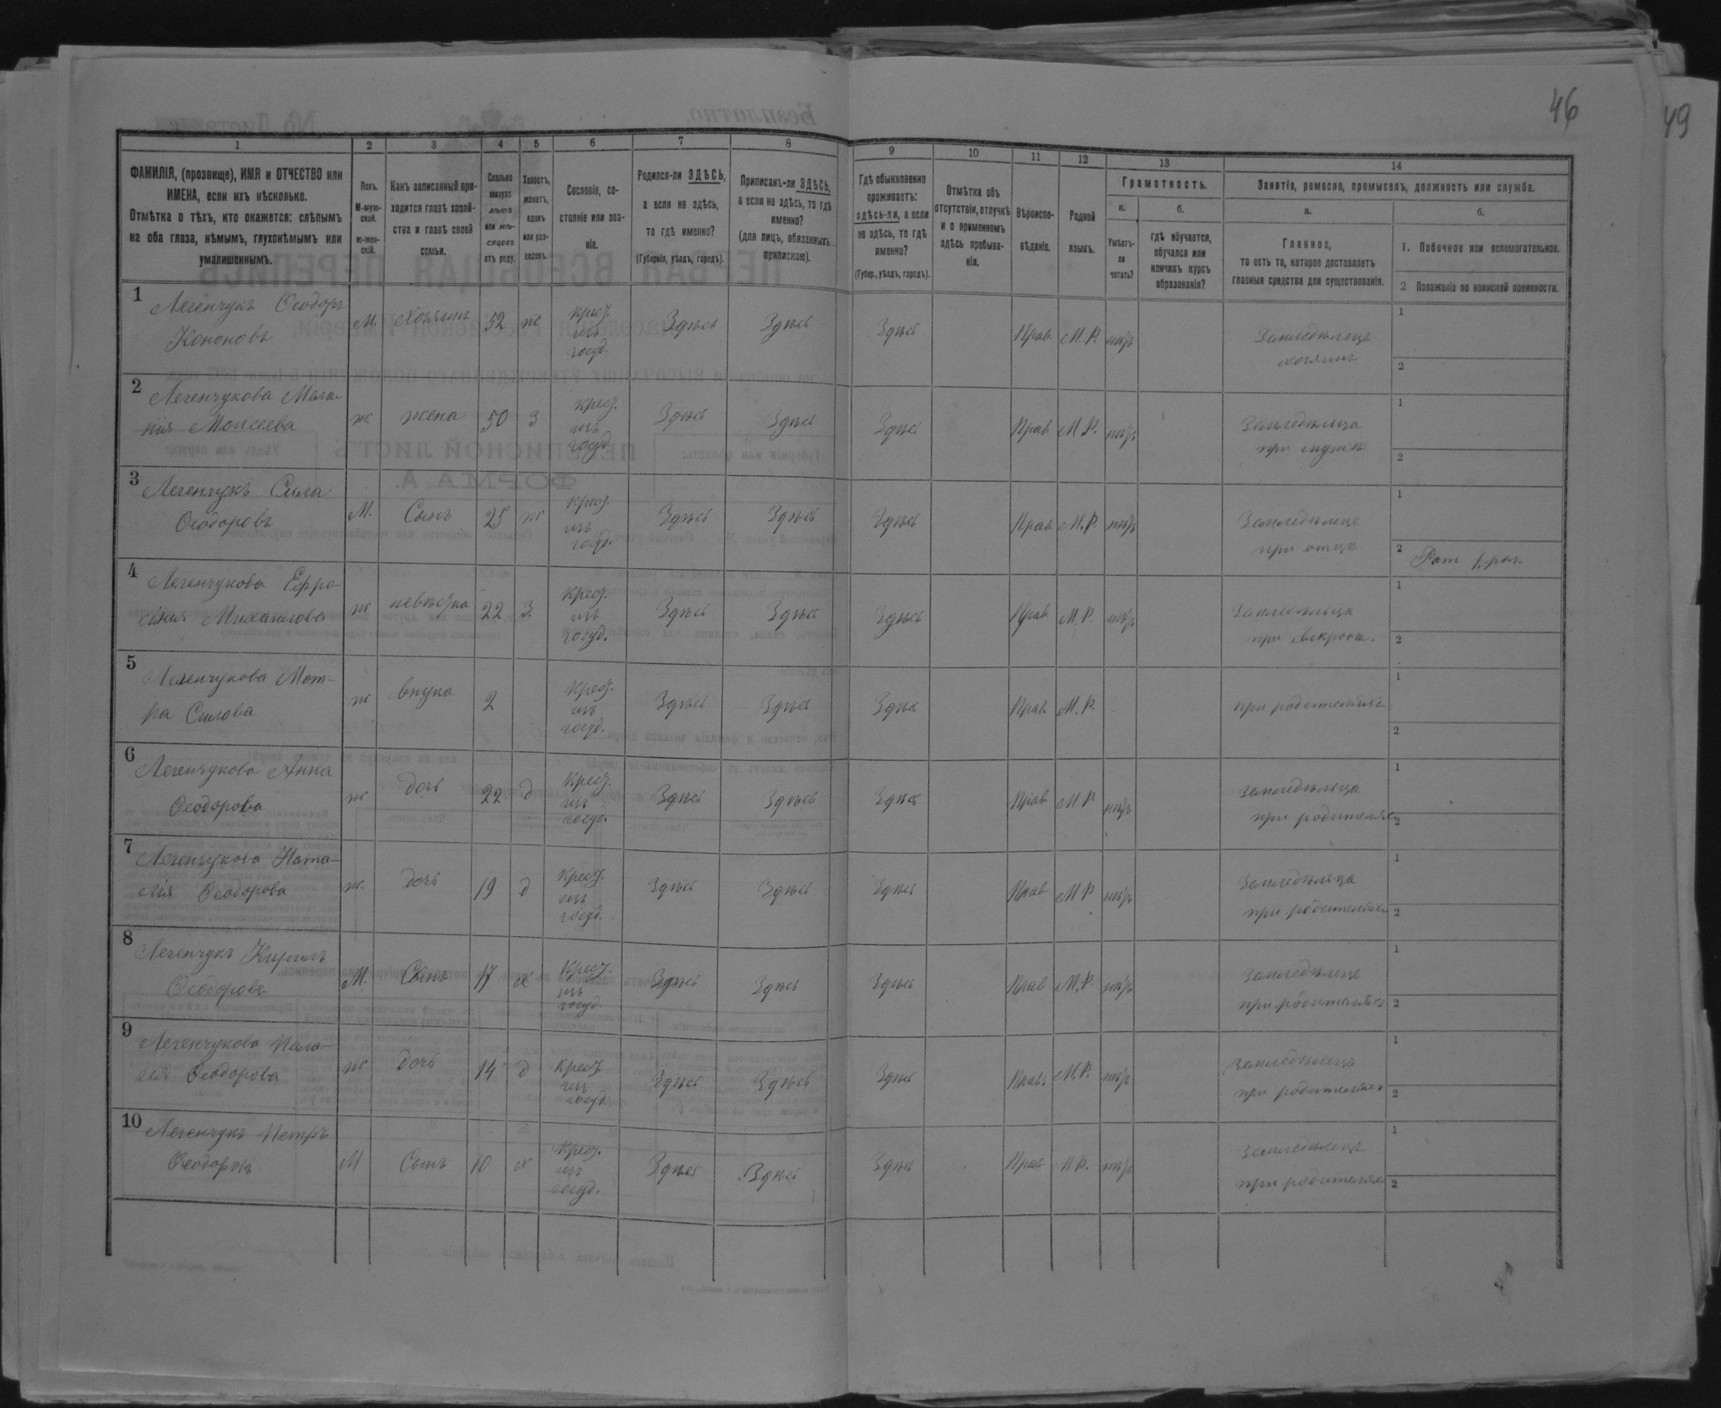 46
49
1
2
3
4
5
6
7
8
9
10
11
12
13
14
ФАМИЛІЯ, (прозвище), ИМЯ и ОТЧЕСТВО или
ИМЕНА, если ихъ нѣсколько.
Отмѣтка о тѣхъ, кто окажется: слѣпымъ
на оба глаза, нѣмымъ, глухонѣмымъ или
умалишеннымъ.
Полъ.
М-муж-
ской.
Ж-жен-
скій.
Какъ записанный при-
ходится главѣ хозяй-
ства и главѣ своей
семьи.
Сколько
минуло
лѣтъ
или мѣ-
сяцевъ
отъ роду.
Холостъ,
женатъ,
вдовъ
или раз-
веденъ.
Сословіе, со-
стояніе или зва-
ніе.
Родился-ли ЗДѢСЬ,
а если не здѣсь,
то гдѣ именно?
(Губернія, уѣздъ, городъ).
Приписанъ-ли ЗДѢСЬ,
а если не здѣсь, то гдѣ
именно?
(для лицъ, обязанныхъ
припискою).
Гдѣ обыкновенно
проживаетъ:
здѣсь-ли, а если
не здѣсь, то гдѣ
именно?
(Губер., уѣздъ, городъ).
Отмѣтка объ
отсутствіи, отлучкѣ
и о временномъ
здѣсь пребыва-
ніи.
Вѣроиспо-
вѣданіе.
Родной
языкъ.
Грамотность.
а.
б.
Умѣетъ-
ли
читать?
гдѣ обучается,
обучался или
кончилъ курсъ
образованія?
Занятіе, ремесло, промыселъ, должность или служба.
а.
б.
Главное,
то есть то, которое доставляетъ
главныя средства для существованія.
1. Побочное или вспомогательное.
2 Положеніе по воинской повинности.
1 Легенчукъ Ѳеодоръ
Кононовъ
М. Хозяинъ 52 ж крест. изъ госуд. Здѣсь Здѣсь Здѣсь Прав. М.Р. нѣтъ Земледѣлецъ
хозяинъ
1
2
2 Легенчукова Мела-
нія Моисеева
ж жена 50 З крест. изъ госуд. Здѣсь Здѣсь Здѣсь Прав М.Р. нѣтъ Земледѣлица
при мужѣ
1
2
3 Легенчукъ Сила
Ѳеодоровъ
М. Сынъ 25 ж крест. изъ госуд. Здѣсь Здѣсь Здѣсь Прав М.Р. нѣтъ Земледѣлецъ
при отцѣ
1
2 Рат. 1 раз.
4 Легенчукова Ефро-
синія Михаилова
ж невѣстка 22 З. крест. изъ госуд. Здѣсь Здѣсь Здѣсь Прав М.Р. нѣтъ Земледѣлица
при свекрови.
1
2
5 Легенчукова Мот-
ра Силова
ж внука 2 крест. изъ госуд. Здѣсь Здѣсь Здѣсь Прав М.Р.
при родителяхъ
1
2
6 Легенчукова Анна
Ѳеодорова
ж дочь 22 д крест. изъ госуд. Здѣсь Здѣсь Здѣсь Прав М.Р. нѣтъ Земледѣлица
при родителяхъ
1
2
7 Легенчукова Ната-
лія Ѳеодорова
ж. дочь 19 д крест. изъ госуд. Здѣсь Здѣсь Здѣсь Прав М.Р. нѣтъ Земледѣлица
при родителяхъ
1
2
8 Легенчукъ Кирилъ
Ѳеодоровъ
М. Сынъ 17 х Крест. изъ госуд. Здѣсь Здѣсь Здѣсь Прав М.Р. нѣтъ Земледѣлецъ
при родителяхъ
1
2
9 Легенчукова Пела-
гея Ѳеодорова
ж дочь 14 д крест. изъ госуд. Здѣсь Здѣсь Здѣсь Прав. М.Р. нѣтъ Земледѣлецъ
при родителяхъ
1
2
10 Легенчукъ Петръ
Ѳеодоровъ
М Сынъ 10 х Крест. изъ госуд. Здѣсь Здѣсь Здѣсь Прав М.Р. нѣтъ Земледѣлецъ
при родителяхъ
1
2